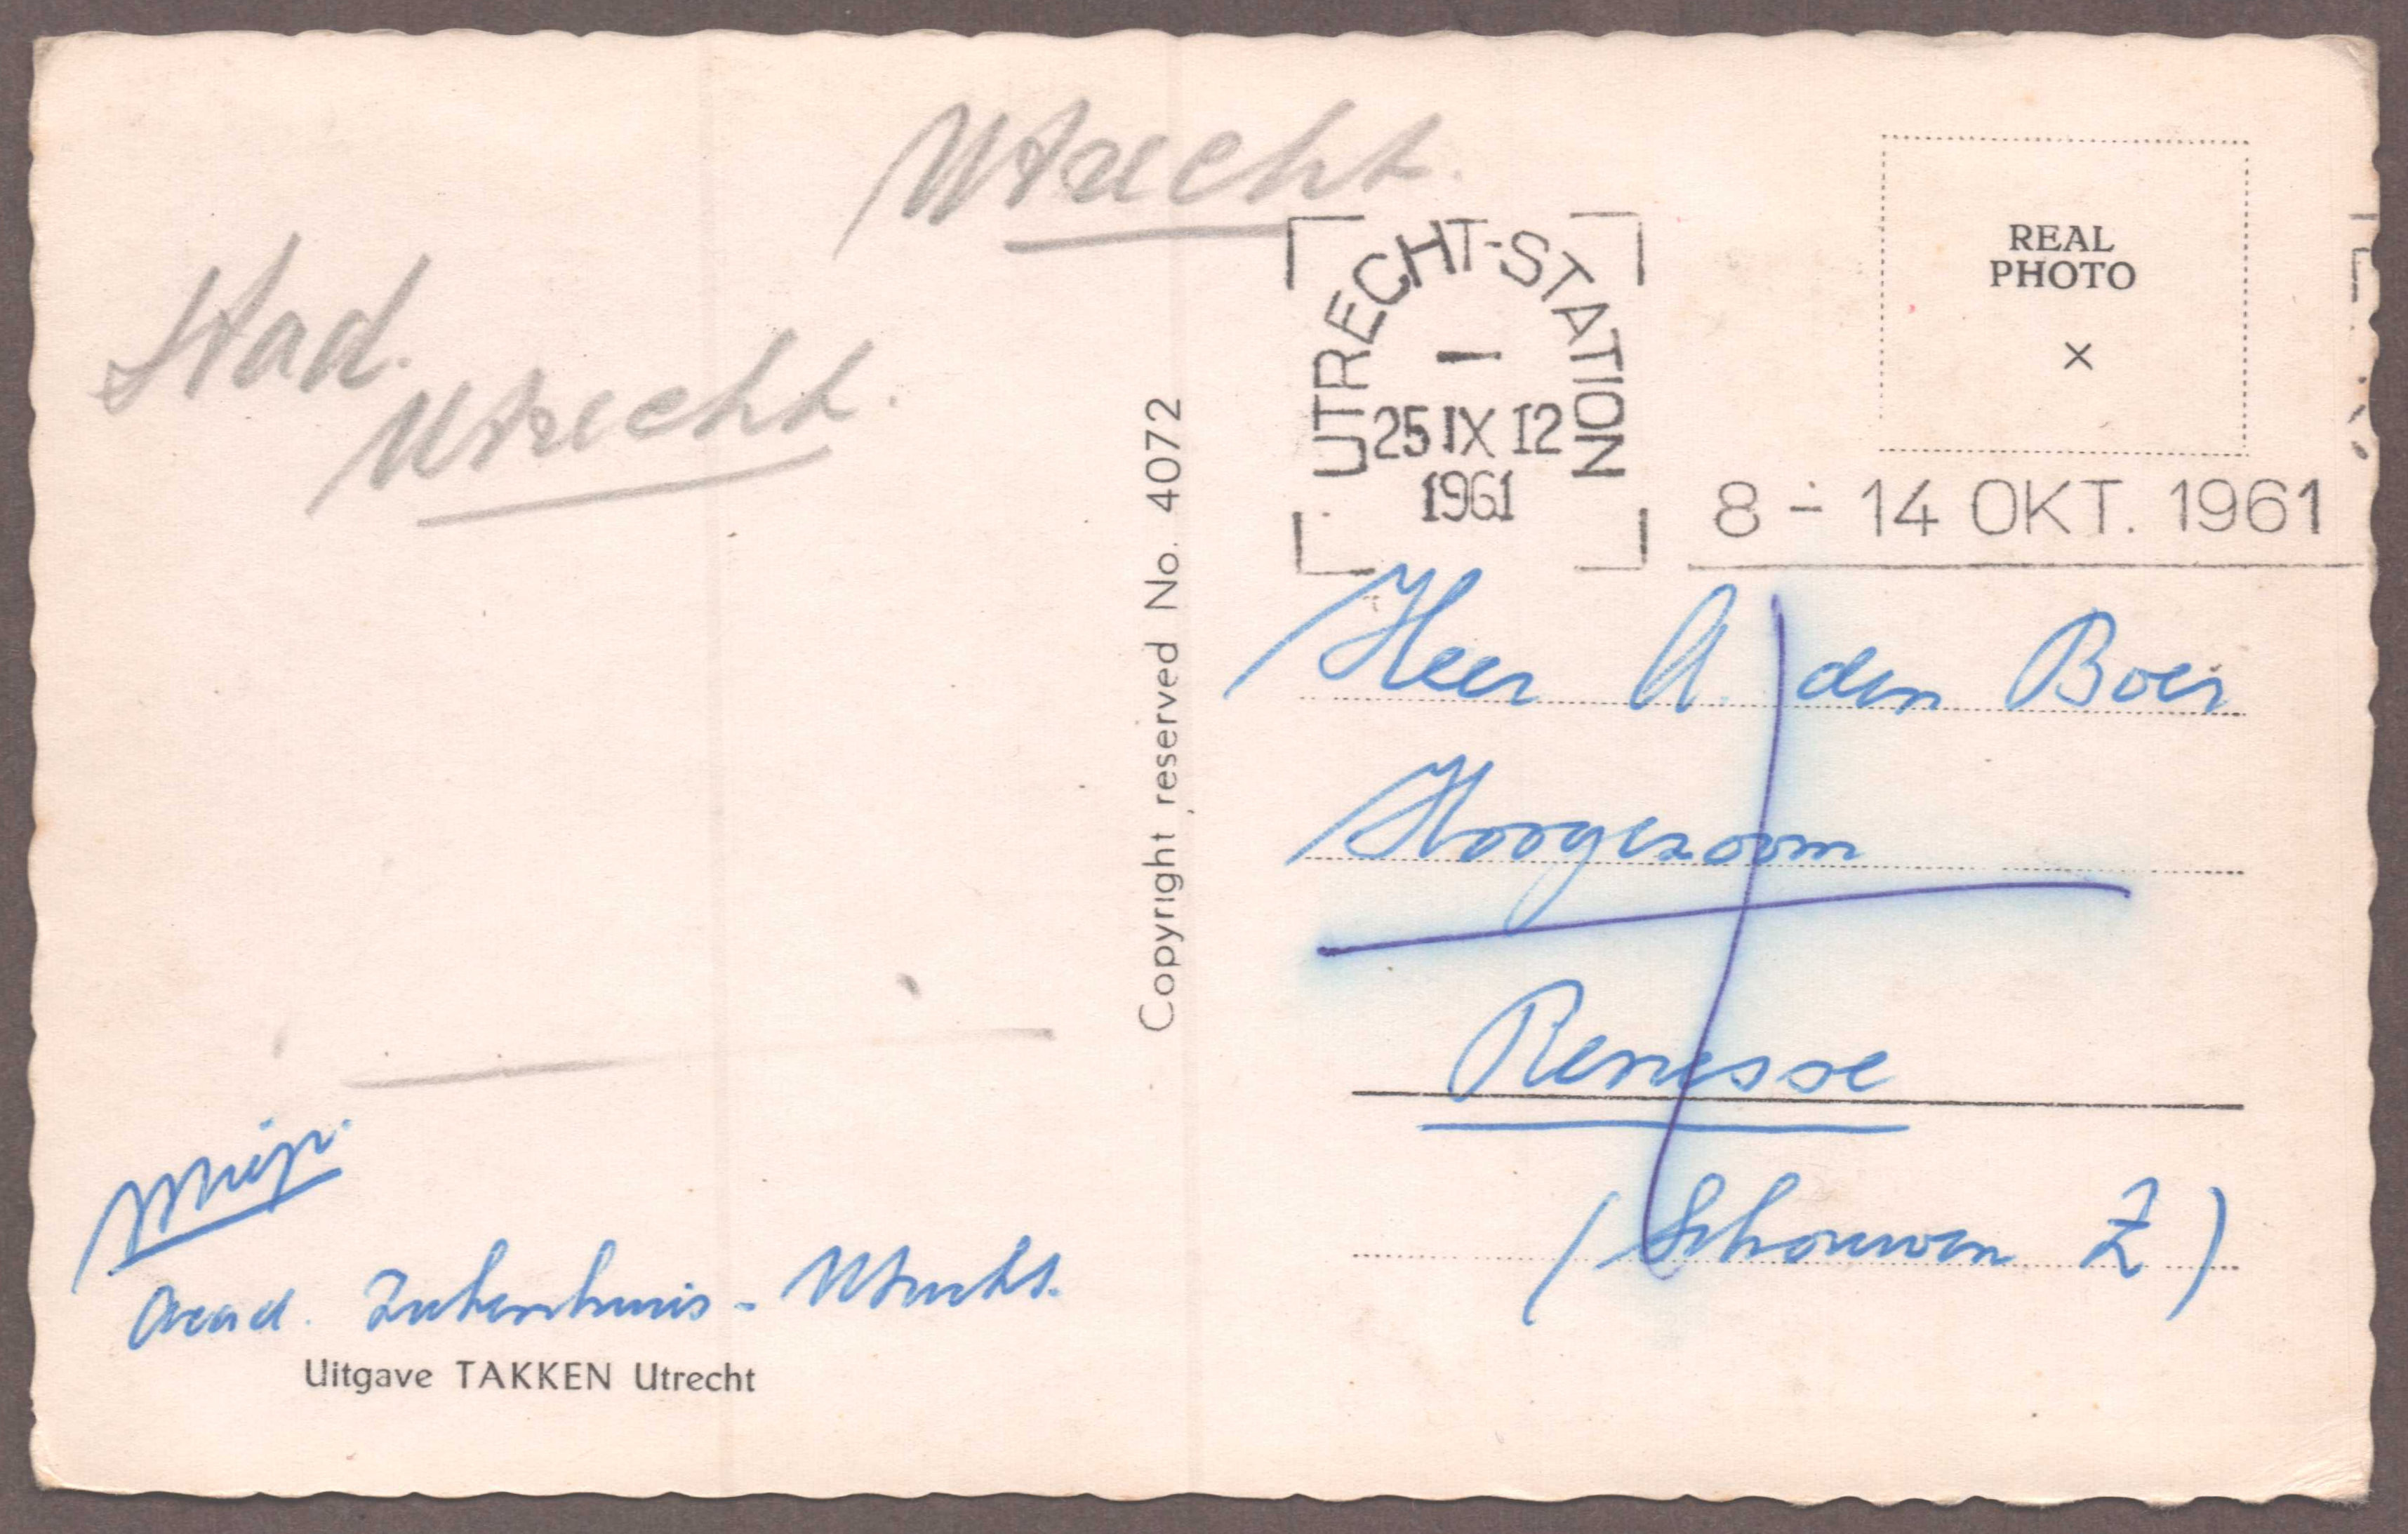 Utrecht.
Stad.
Utrecht.
UTRECHT-STATION
25 IX 12
1961
REAL
PHOTO
×
8 - 14 OKT. 1961
Copyright reserved No. 4072
Heer A. den Boer
Hoogezoom
Renesse
(Schouwen Z)
Miep.
Acad. Ziekenhuis - Utrecht.
Uitgave TAKKEN Utrecht